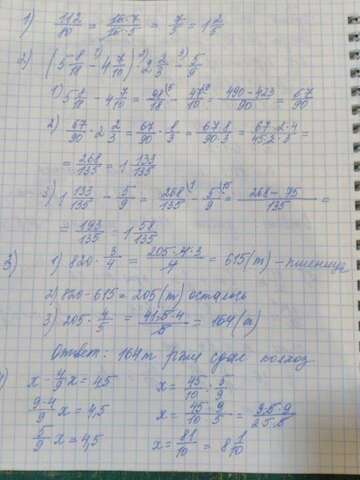 1) 112/80 = 16·7/16·5 = 7/5 = 1 2/5
2) (5 8/18 - 4 7/10) · 2 2/3 - 5/9
1) 5 8/18 - 4 7/10 = 98/18 - 47/10 = 490-423/90 = 67/90
2) 67/90 · 2 2/3 = 67/90 · 8/3 = 67·8/90·3 = 67·2·4/45·2·3 =
= 268/135 = 1 133/135
3) 1 133/135 - 5/9 = 268/135 - 5/9 = 268-75/135 =
= 193/135 = 1 58/135
3) 1) 820 · 3/4 = 205·4·3/4 = 615(т) - пшеница
2) 820-615 = 205(т) осталось
3) 205 · 4/5 = 41·5·4/5 = 164(т)
Ответ: 164т ржи сдал колхоз
x - 4/9 x = 4,5
9-4/9 x = 4,5
5/9 x = 4,5
x = 45/10 : 5/9
x = 45/10 · 9/5 =
x = 81/10 = 8 1/10